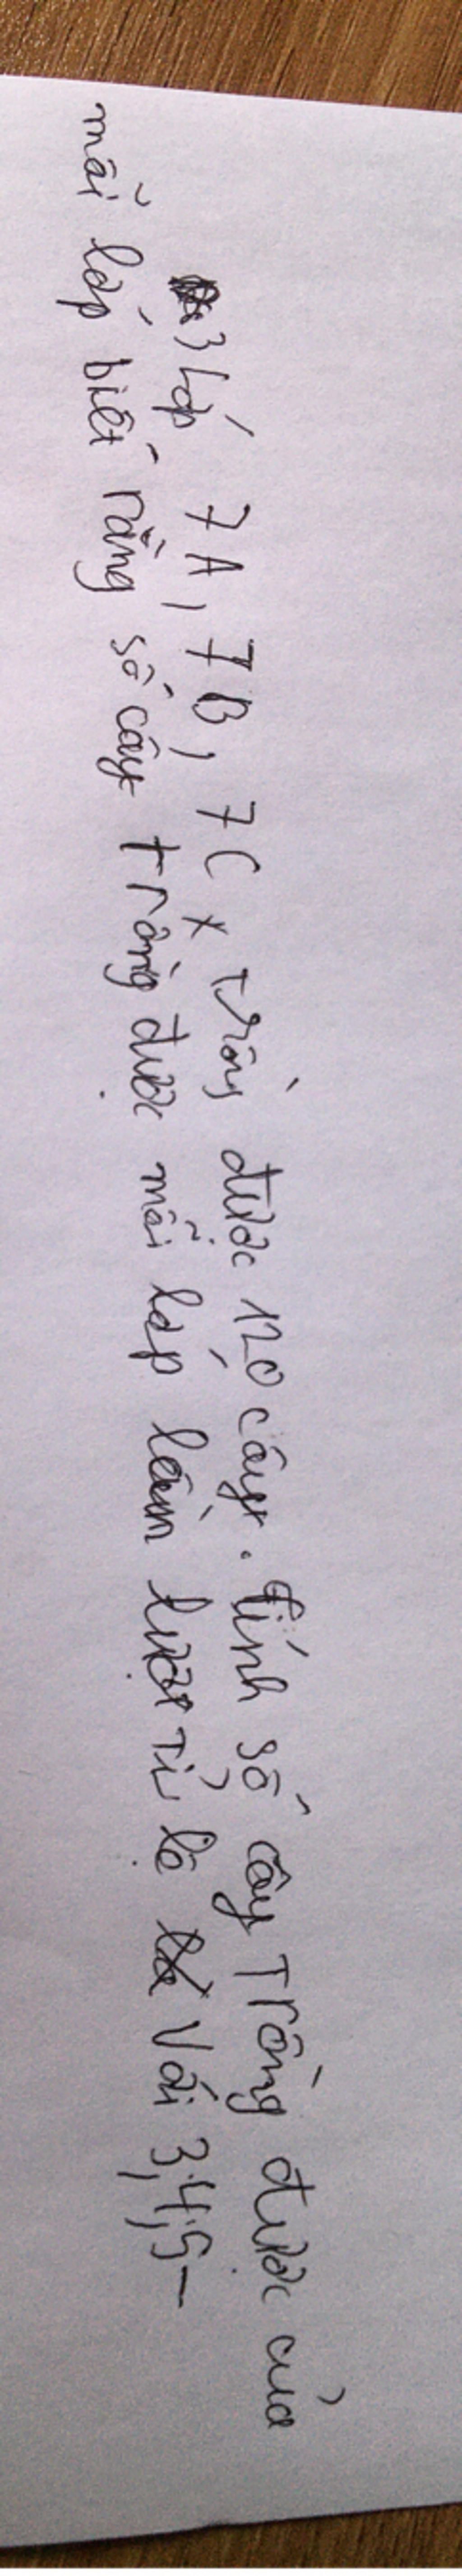 3 Lớp 7A, 7B, 7C trồng được 120 cây. Tính số cây Trồng được của
mỗi lớp biết rằng số cây trồng được mỗi lớp lần lượt Tỉ lệ với 3,4,5